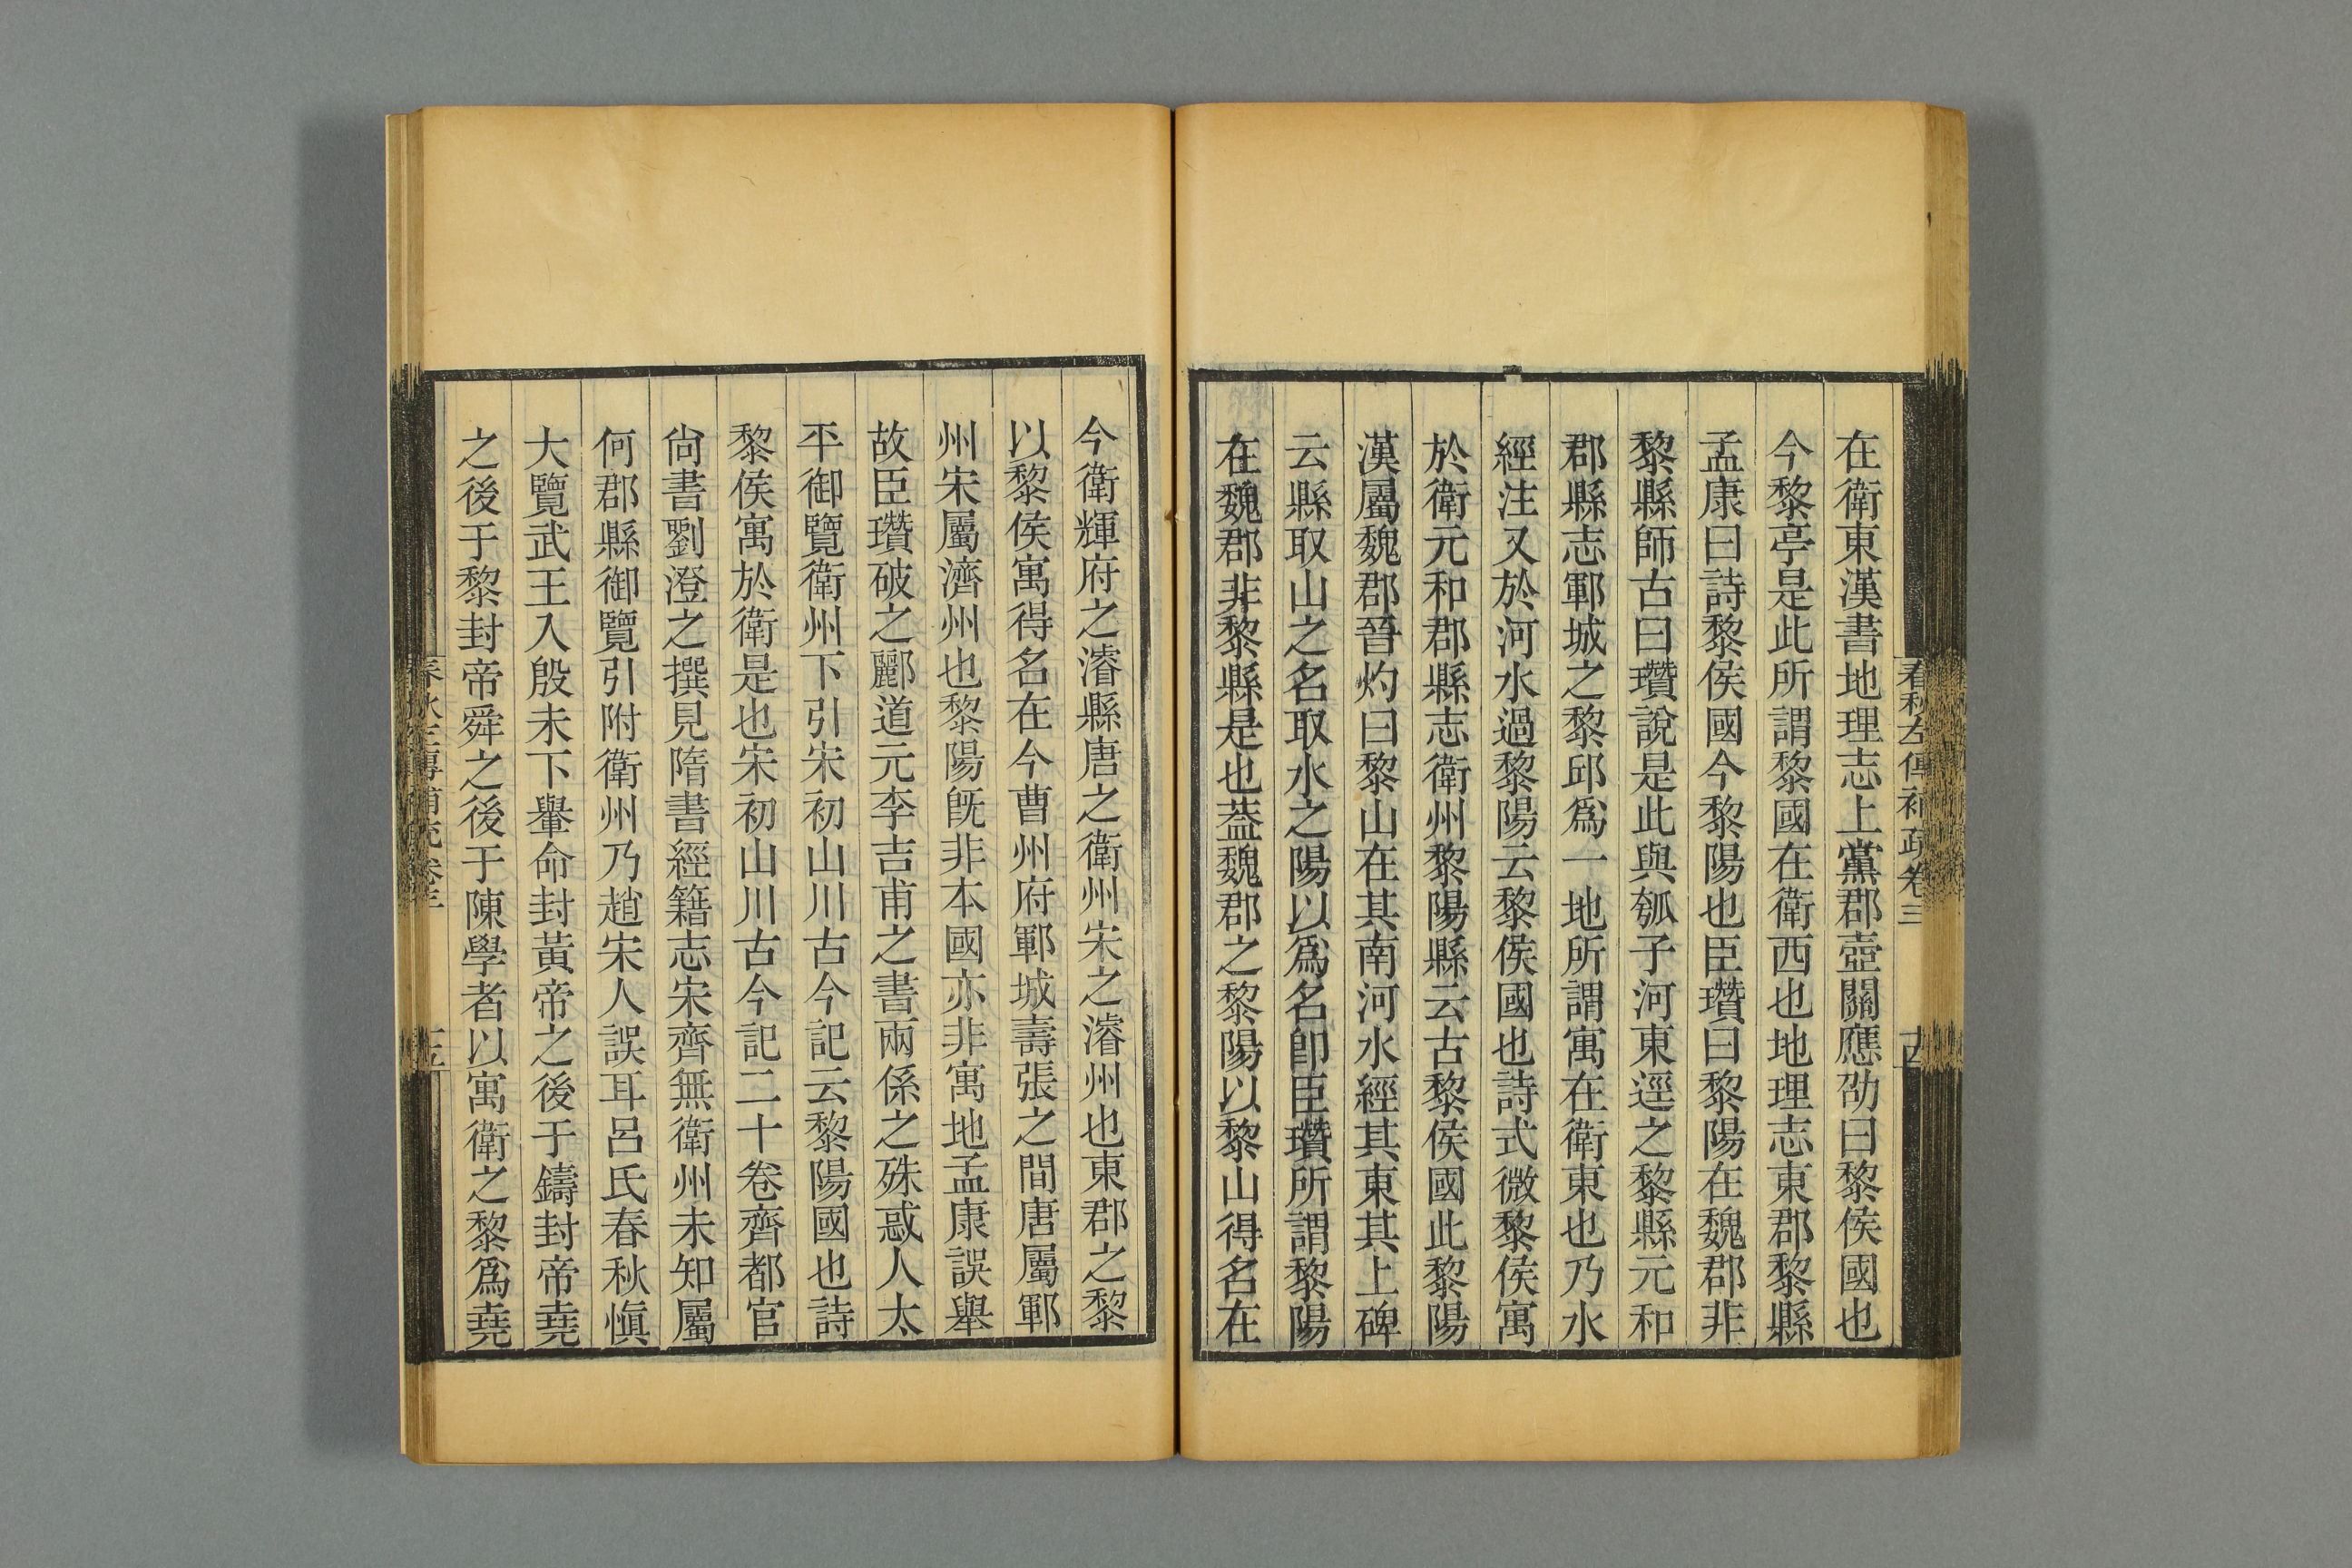 春秋左傳補疏卷三
在衛東漢書地理志上黨郡壺關應劭曰黎侯國也
今黎亭是此所謂黎國在衛西也地理志東郡黎縣
孟康曰詩黎侯國今黎陽也臣瓚曰黎陽在魏郡非
黎縣師古曰瓚說是此與瓠子河東逕之黎縣元和
郡縣志鄆城之黎邱爲一地所謂寓在衛東也乃水
經注又於河水過黎陽云黎侯國也詩式微黎侯寓
於衛元和郡縣志衛州黎陽縣云古黎侯國此黎陽
漢屬魏郡晉灼曰黎山在其南河水經其東其上碑
云縣取山之名取水之陽以爲名卽臣瓚所謂黎陽
在魏郡非黎縣是也葢魏郡之黎陽以黎山得名在
今衛輝府之濬縣唐之衛州宋之濬州也東郡之黎
以黎侯寓得名在今曹州府鄆城壽張之間唐屬鄆
州宋屬濟州也黎陽旣非本國亦非寓地孟康誤舉
故臣瓚破之酈道元李吉甫之書兩係之殊惑人太
平御覽衛州下引宋初山川古今記云黎陽國也詩
黎侯寓於衛是也宋初山川古今記二十卷齊都官
尙書劉澄之撰見隋書經籍志宋齊無衛州未知屬
何郡縣御覽引附衛州乃趙宋人誤耳呂氏春秋愼
大覽武王入殷未下轝命封黃帝之後于鑄封帝堯
之後于黎封帝舜之後于陳學者以寓衛之黎爲堯
春秋左傳補疏卷三